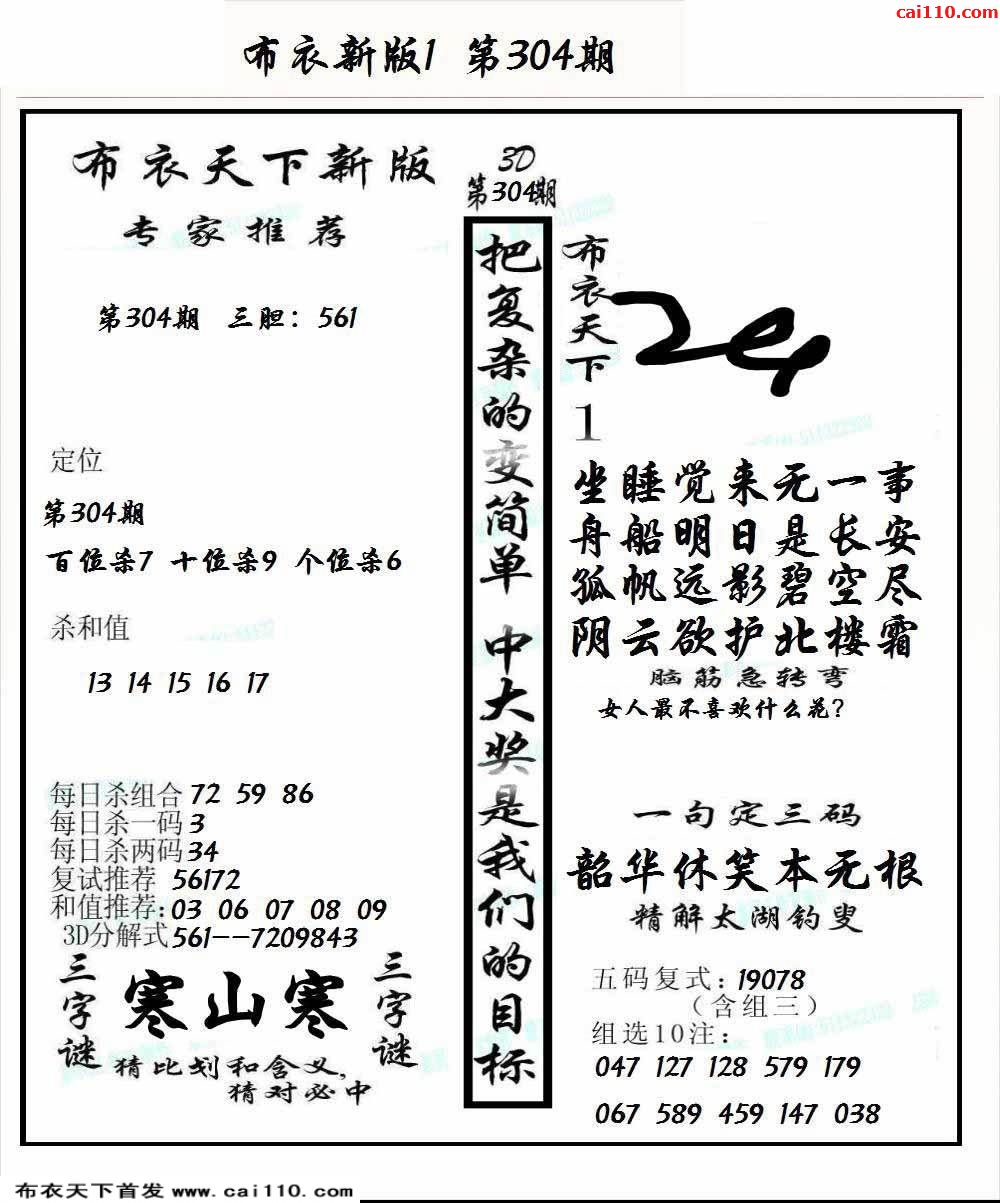 cai110.com
布衣新版1 第304期
布衣天下新版
专家推荐
第304期 三胆：561
定位
第304期
百位杀7 十位杀9 个位杀6
杀和值
13 14 15 16 17
每日杀组合 72 59 86
每日杀一码 3
每日杀两码 34
复试推荐 56172
和值推荐：03 06 07 08 09
3D分解式 561--7209843
三字谜
寒山寒
三字谜
猜比划和含义，
猜对必中
3D
第304期
把复杂的变简单 中大奖是我们的目标
布衣天下1
坐睡觉来无一事
舟船明日是长安
孤帆远影碧空尽
阴云欲护北楼霜
脑筋急转弯
女人最不喜欢什么花？
一句定三码
韶华休笑本无根
精解太湖钓叟
五码复式：19078
（含组三）
组选10注：
047 127 128 579 179
067 589 459 147 038
布衣天下首发 www.cai110.com